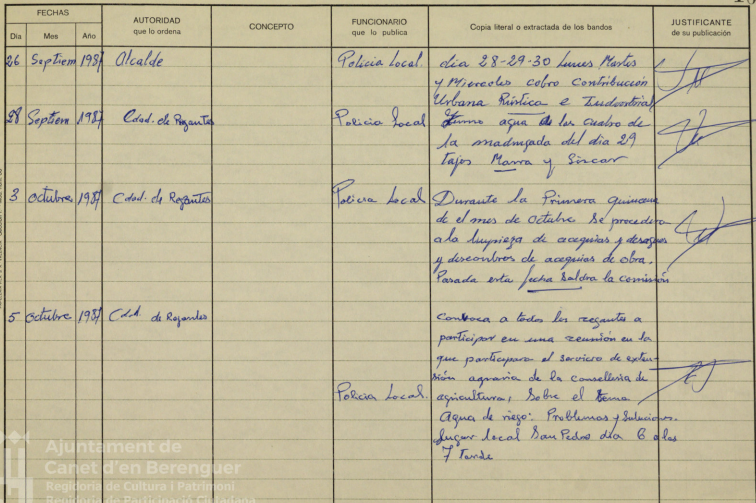 FECHAS
AUTORIDAD
que lo ordena
CONCEPTO
FUNCIONARIO
que lo publica
Copia literal o extractada de los bandos
JUSTIFICANTE
de su publicación
Dia Mes Año
26 Septiem 1987 Alcalde Policia Local. dia 28-29-30 Lunes Martes
y Miercoles cobro Contribución
Urbana Rústica e Industrial
28 Septiem 1987 Cdad. de Regantes Policia Local turno agua de las cuatro de
la madrugada del dia 29
tajos Marra y Sincar
3 octubre 1987 Cdad. de Regantes Policia Local Durante la Primera quincena
de el mes de Octubre Se procedera
a la limpieza de acequias y desagues
y descombros de acequias de obra.
Pasada esta fecha Saldra la comisión
5 octubre 1987 Cdad. de Regantes convoca a todos los regantes a
participar en una reunión en la
que participara el servicio de exten-
sión agraria de la conselleria de
Policia Local. agricultura, Sobre el tema
Agua de riego: Problemas y Soluciones.
Lugar local San Pedro dia 6 a las
7 tarde
Ajuntament de
Canet d'en Berenguer
Regidoria de Cultura i Patrimoni
Regidoria de Participació Ciutadana